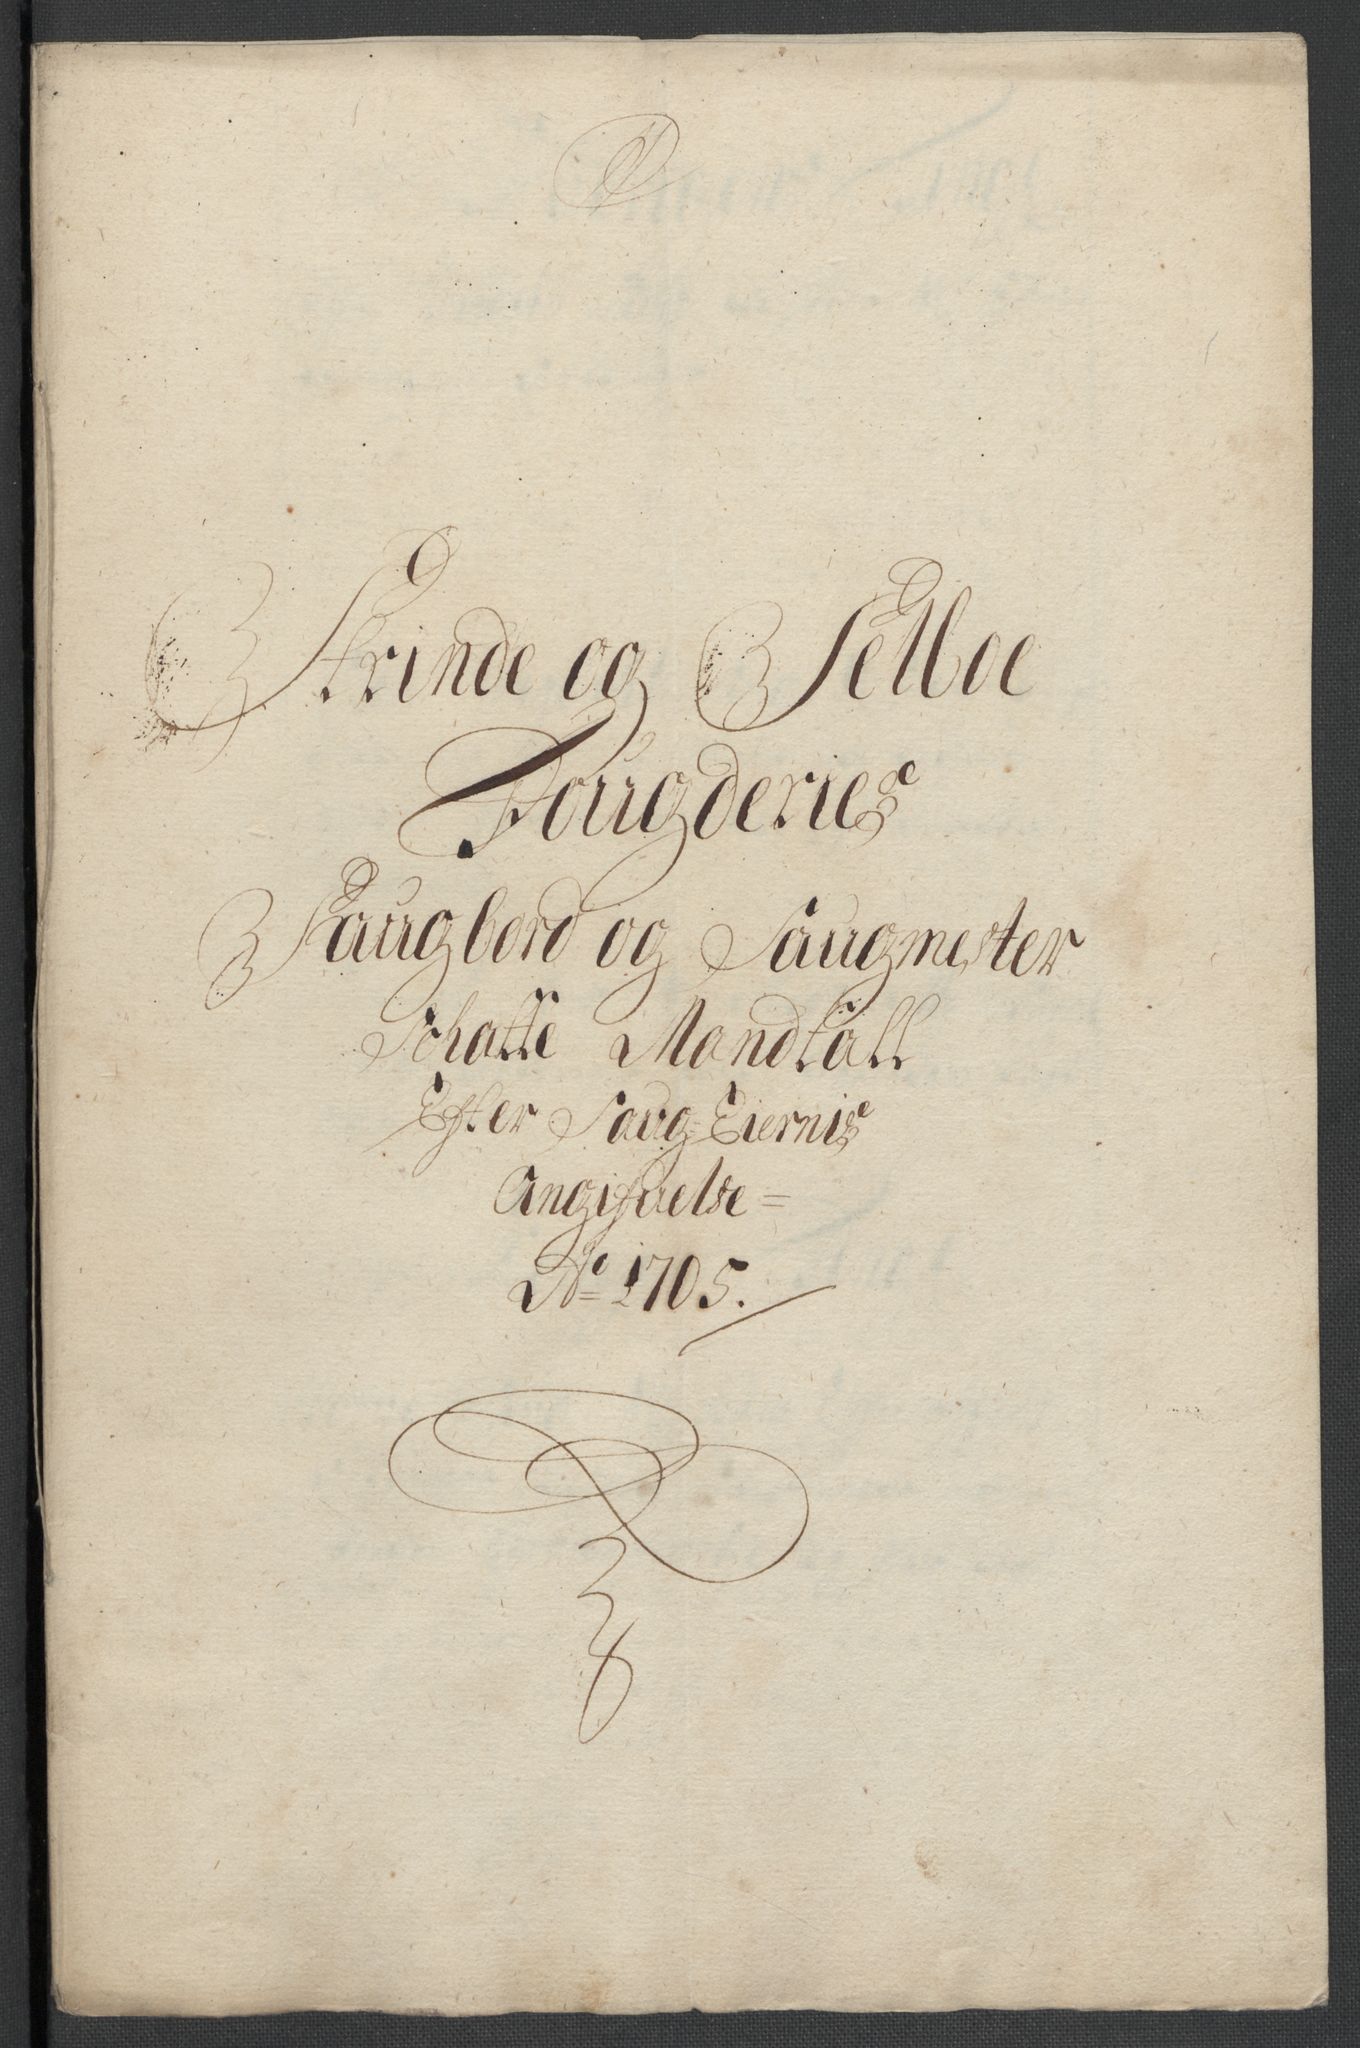 Strinde og Selboe
Fougderies
Saugbord og Saugmester
Schatte Mandtall
Efter Saug-Eiernis
Angifuelse=
Ao 1705.